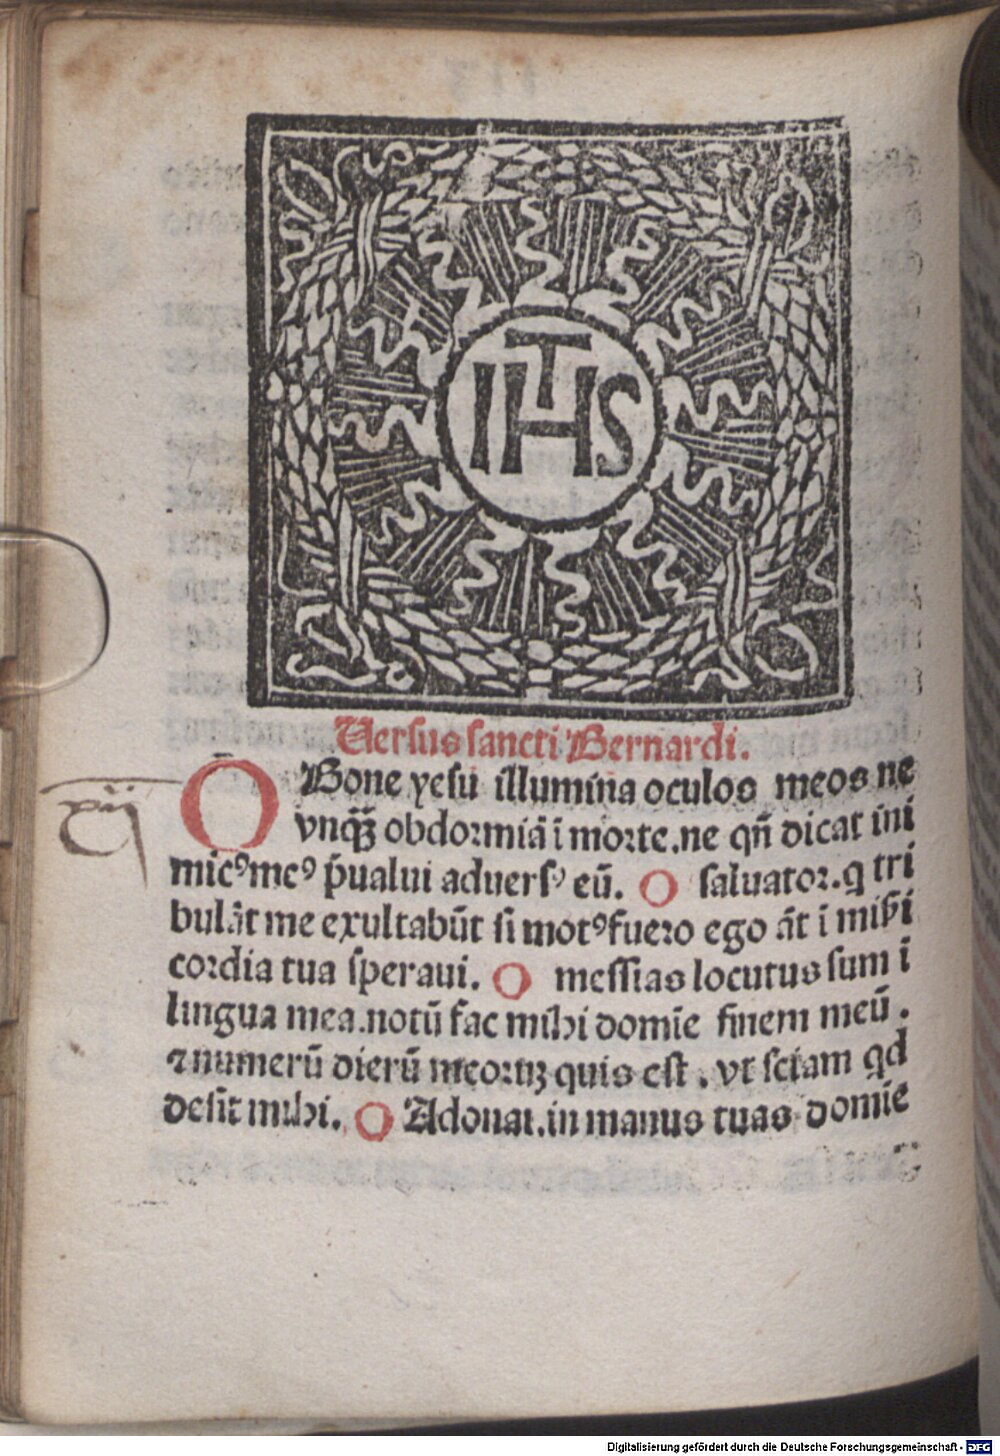 IHS
Uersus sancti Bernardi.
O Bone yesu illumina oculos meos ne
vnqꝫ obdormiā ī morte. ne qn̄ dicat ini
micꝰ meꝰ p̄ualui aduersꝰ eū. O saluator. q tri
bulāt me exultabūt si motꝰ fuero ego āt ī mis̄i
cordia tua speraui. O messias locutus sum ī
lingua mea. notū fac mihi domīe finem meū.
⁊ numerū dierū meorꝝ quis est. vt sciam qd
desit mihi. O Adonai. in manus tuas domīe
Digitalisierung gefördert durch die Deutsche Forschungsgemeinschaft - DFG